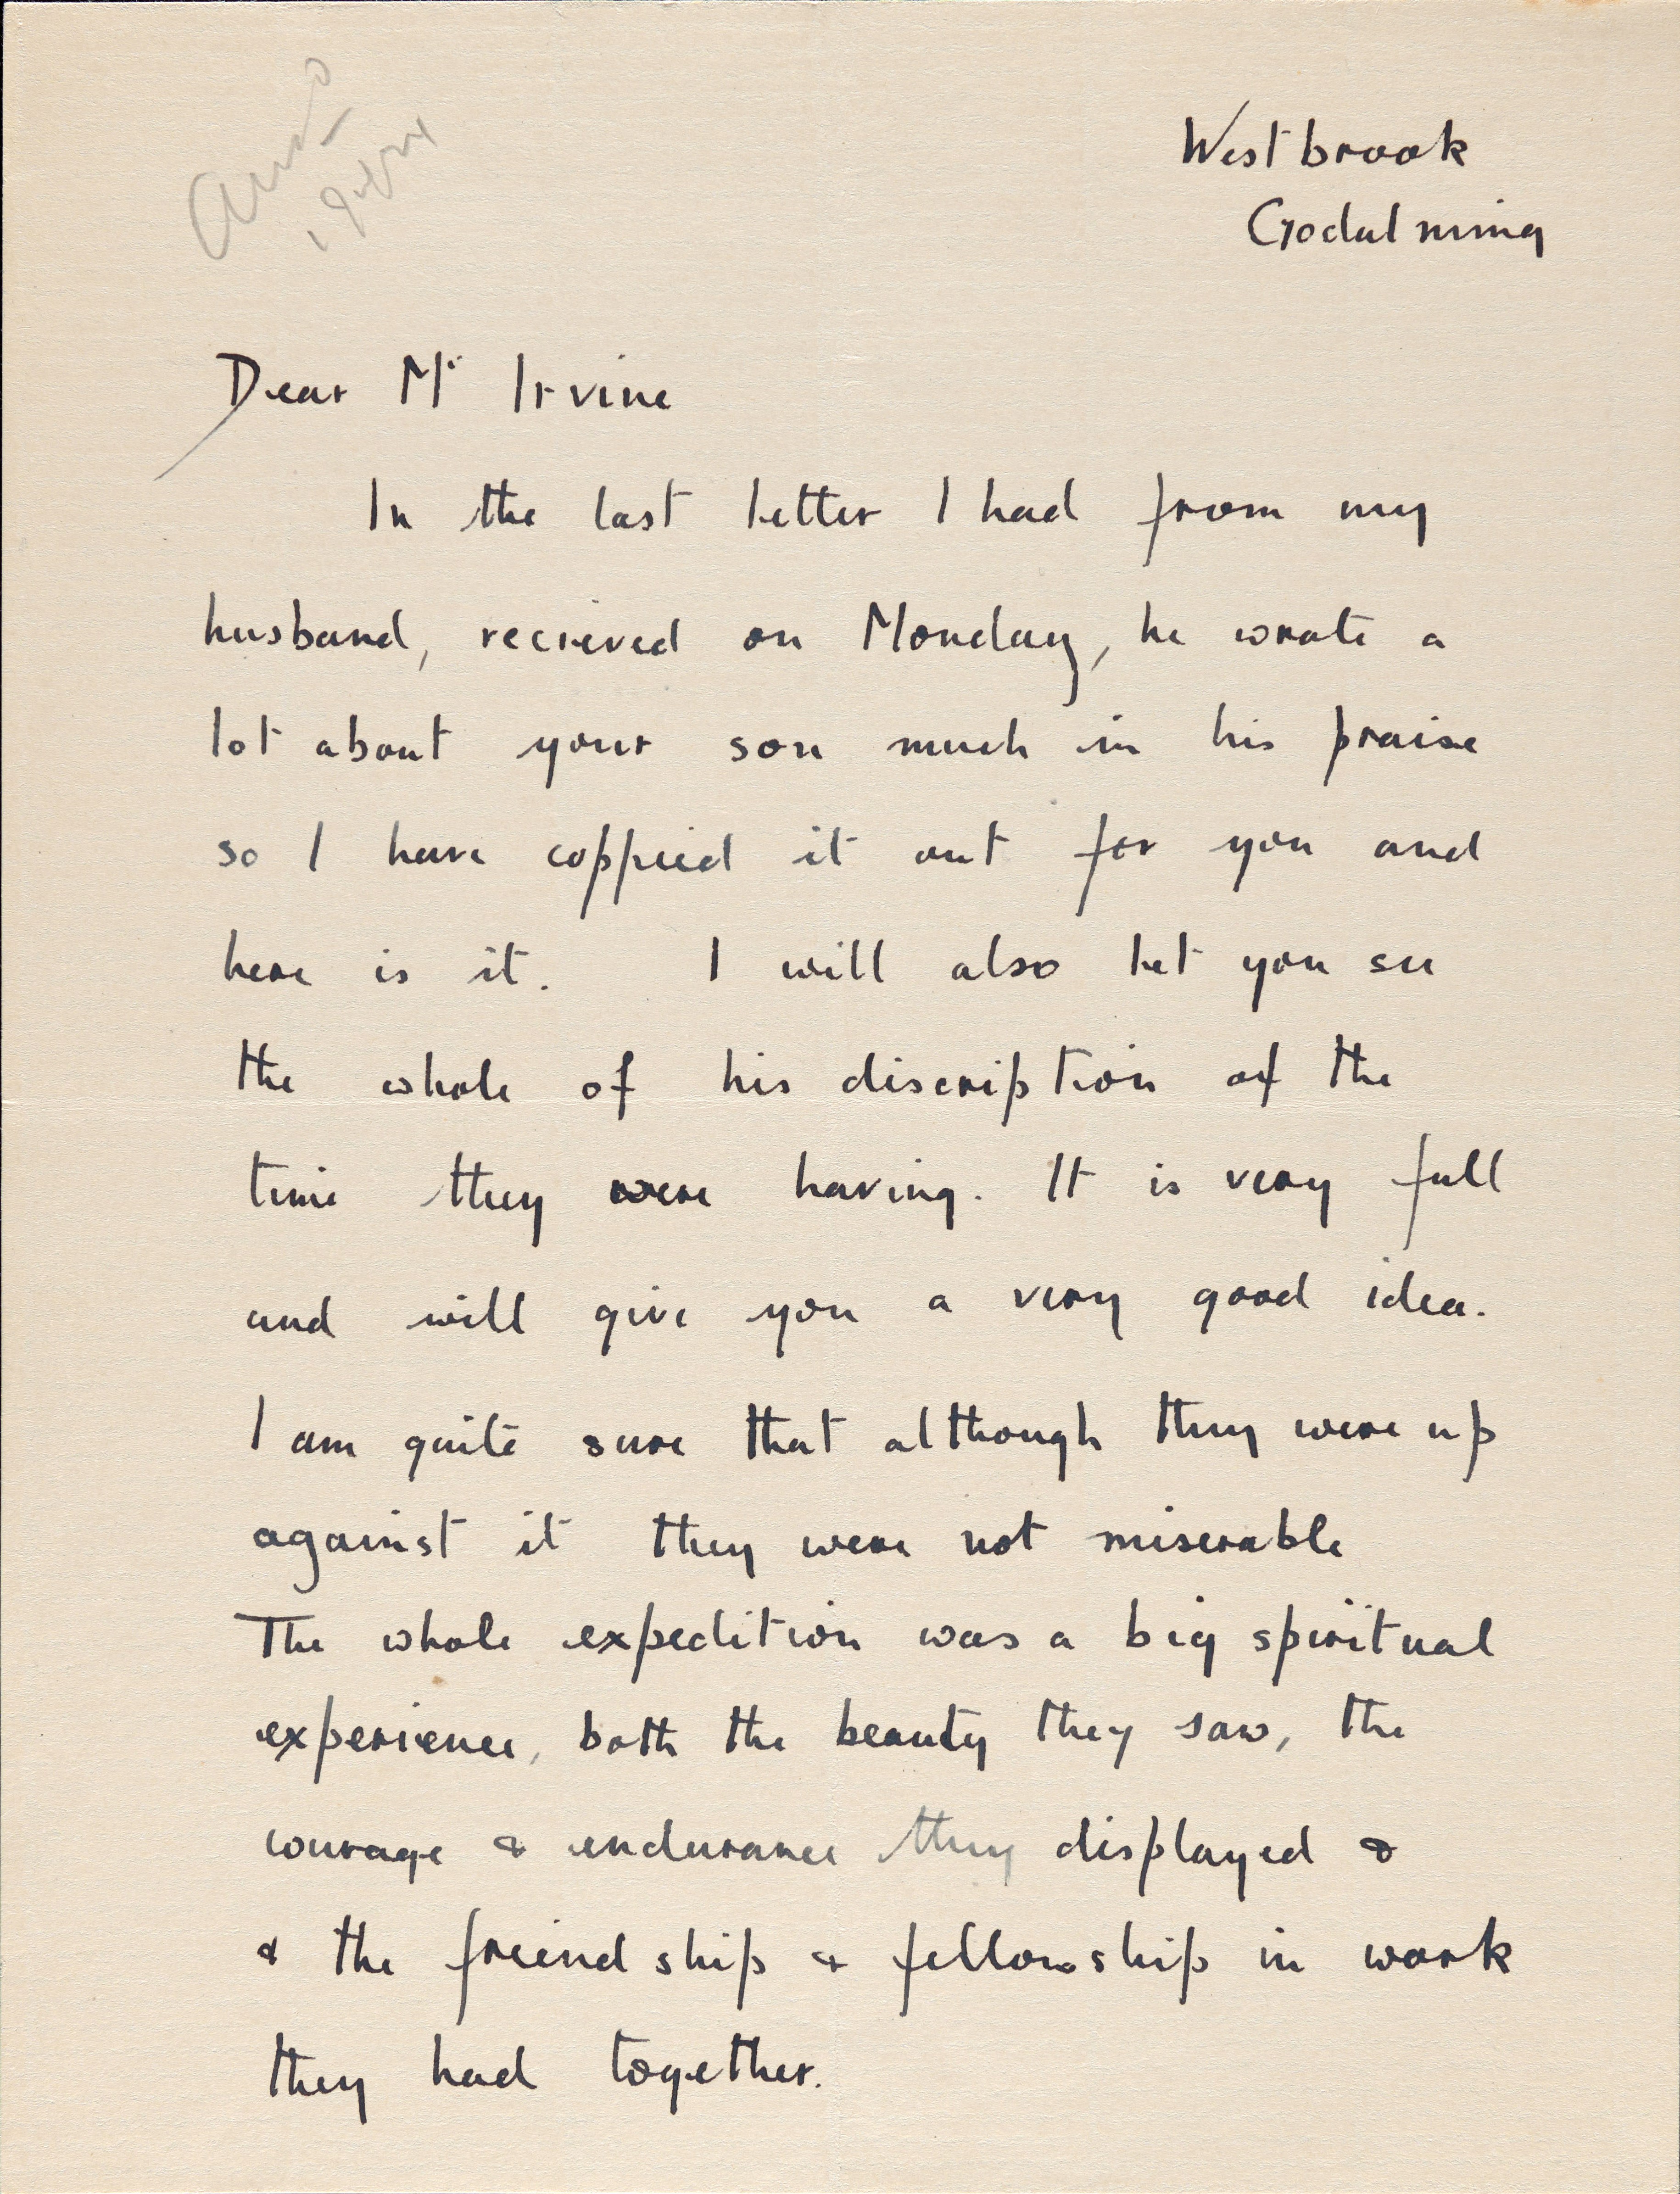 Westbrook
Godalming
Dear Mr Irvine
In the last letter I had from my
husband, recieved on Monday, he wrote a
lot about your son much in his praise
so I have coppied it out for you and
here is it. I will also let you see
the whole of his discription of the
time they were having. It is very full
and will give you a very good idea.
I am quite sure that although they were up
against it they were not miserable
The whole expedition was a big spiritual
experience, both the beauty they saw, the
courage & endurance they displayed &
& the friendship & fellowship in work
they had together.